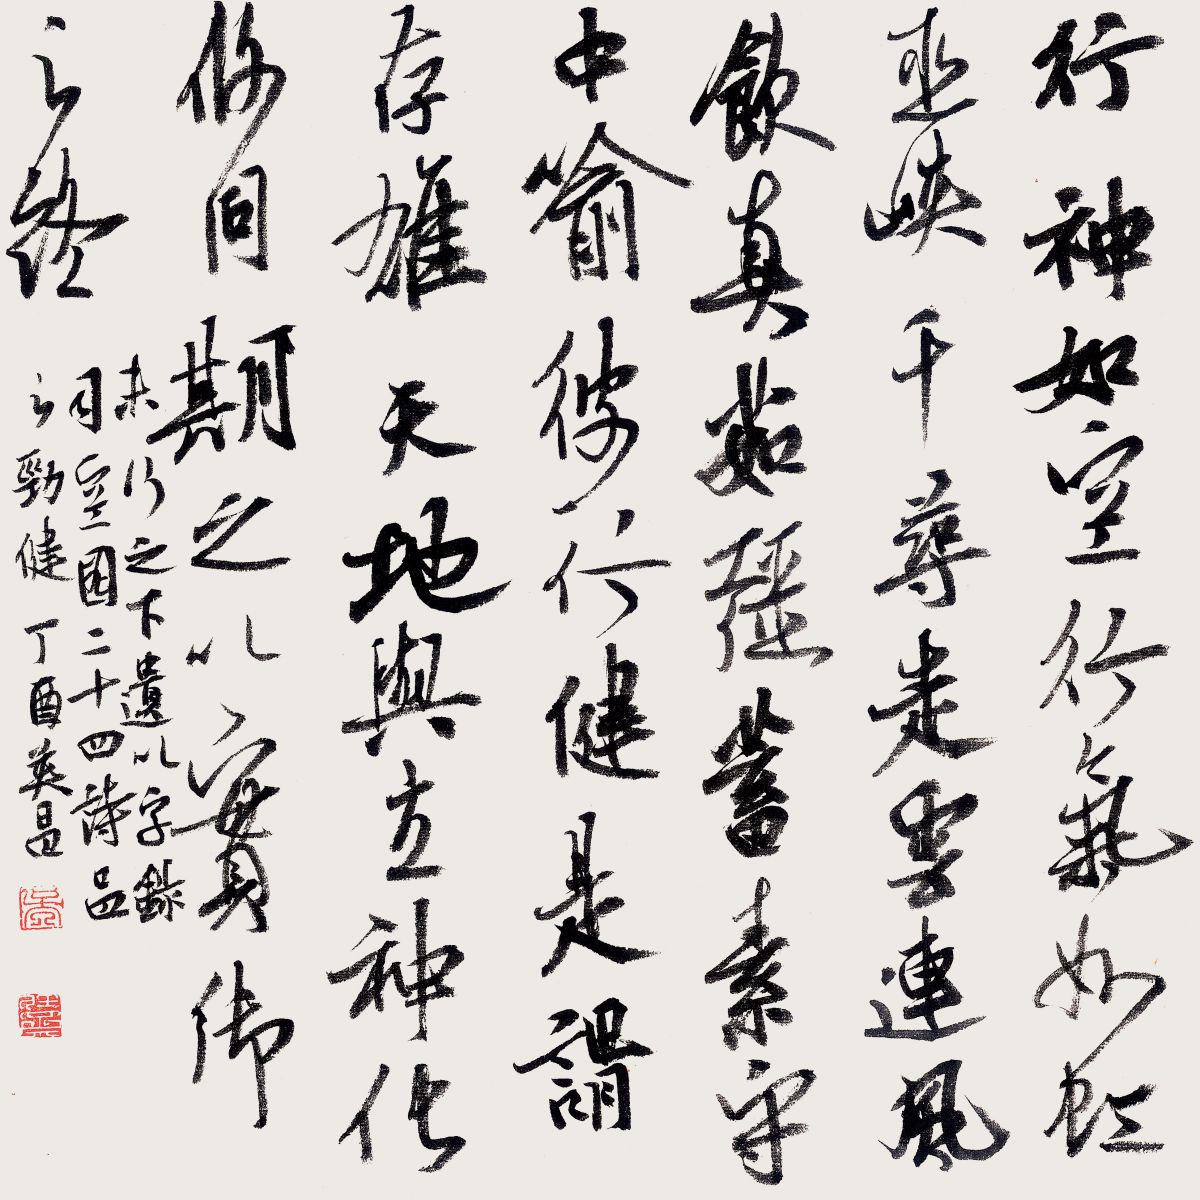 行神如空行氣如虹
巫峽千尋走雲連風
飲真茹強蓄素守
中喻彼行健是謂
存雄天地與立神化
攸同期之以實御
之終
末行之下遺以字錄
司空圖二十四詩品
之勁健丁酉英昌